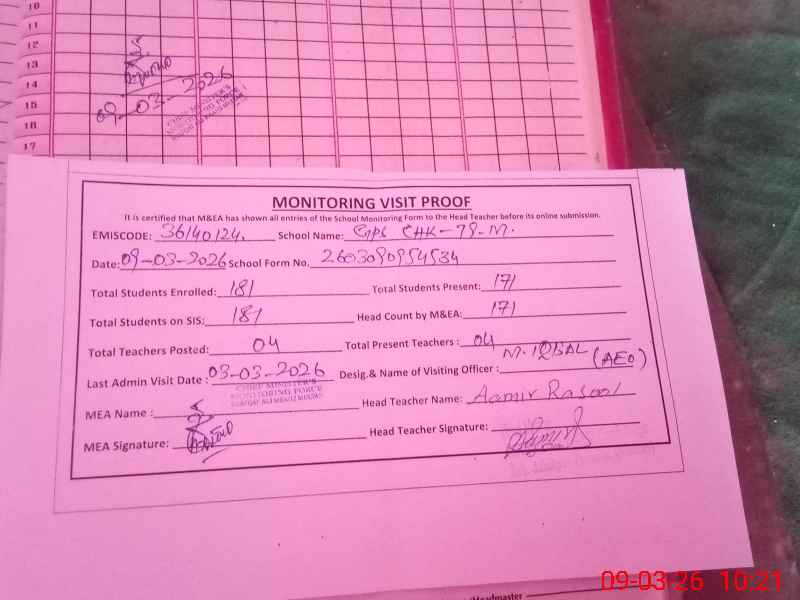 10
11
12
13
14
15
16
17
09-03-2026
CHIEF MINISTER'S
MONITORING FORCE
MONITORING VISIT PROOF
It is certified that M&EA has shown all entries of the School Monitoring Form to the Head Teacher before its online submission.
EMISCODE: 36140124. School Name: GPS CHK-79-M.
Date: 09-03-2026 School Form No. 2603090954534
Total Students Enrolled: 181 Total Students Present: 171
Total Students on SIS: 181 Head Count by M&EA: 171
Total Teachers Posted: 04 Total Present Teachers: 04
Last Admin Visit Date: 03-03-2026 Desig.& Name of Visiting Officer: M. IQBAL (AEO)
CHIEF MINISTER'S
MONITORING FORCE
MEA Name: Head Teacher Name: Aamir Rasool
MEA Signature: Head Teacher Signature:
Headmaster
09-03-26 10:21